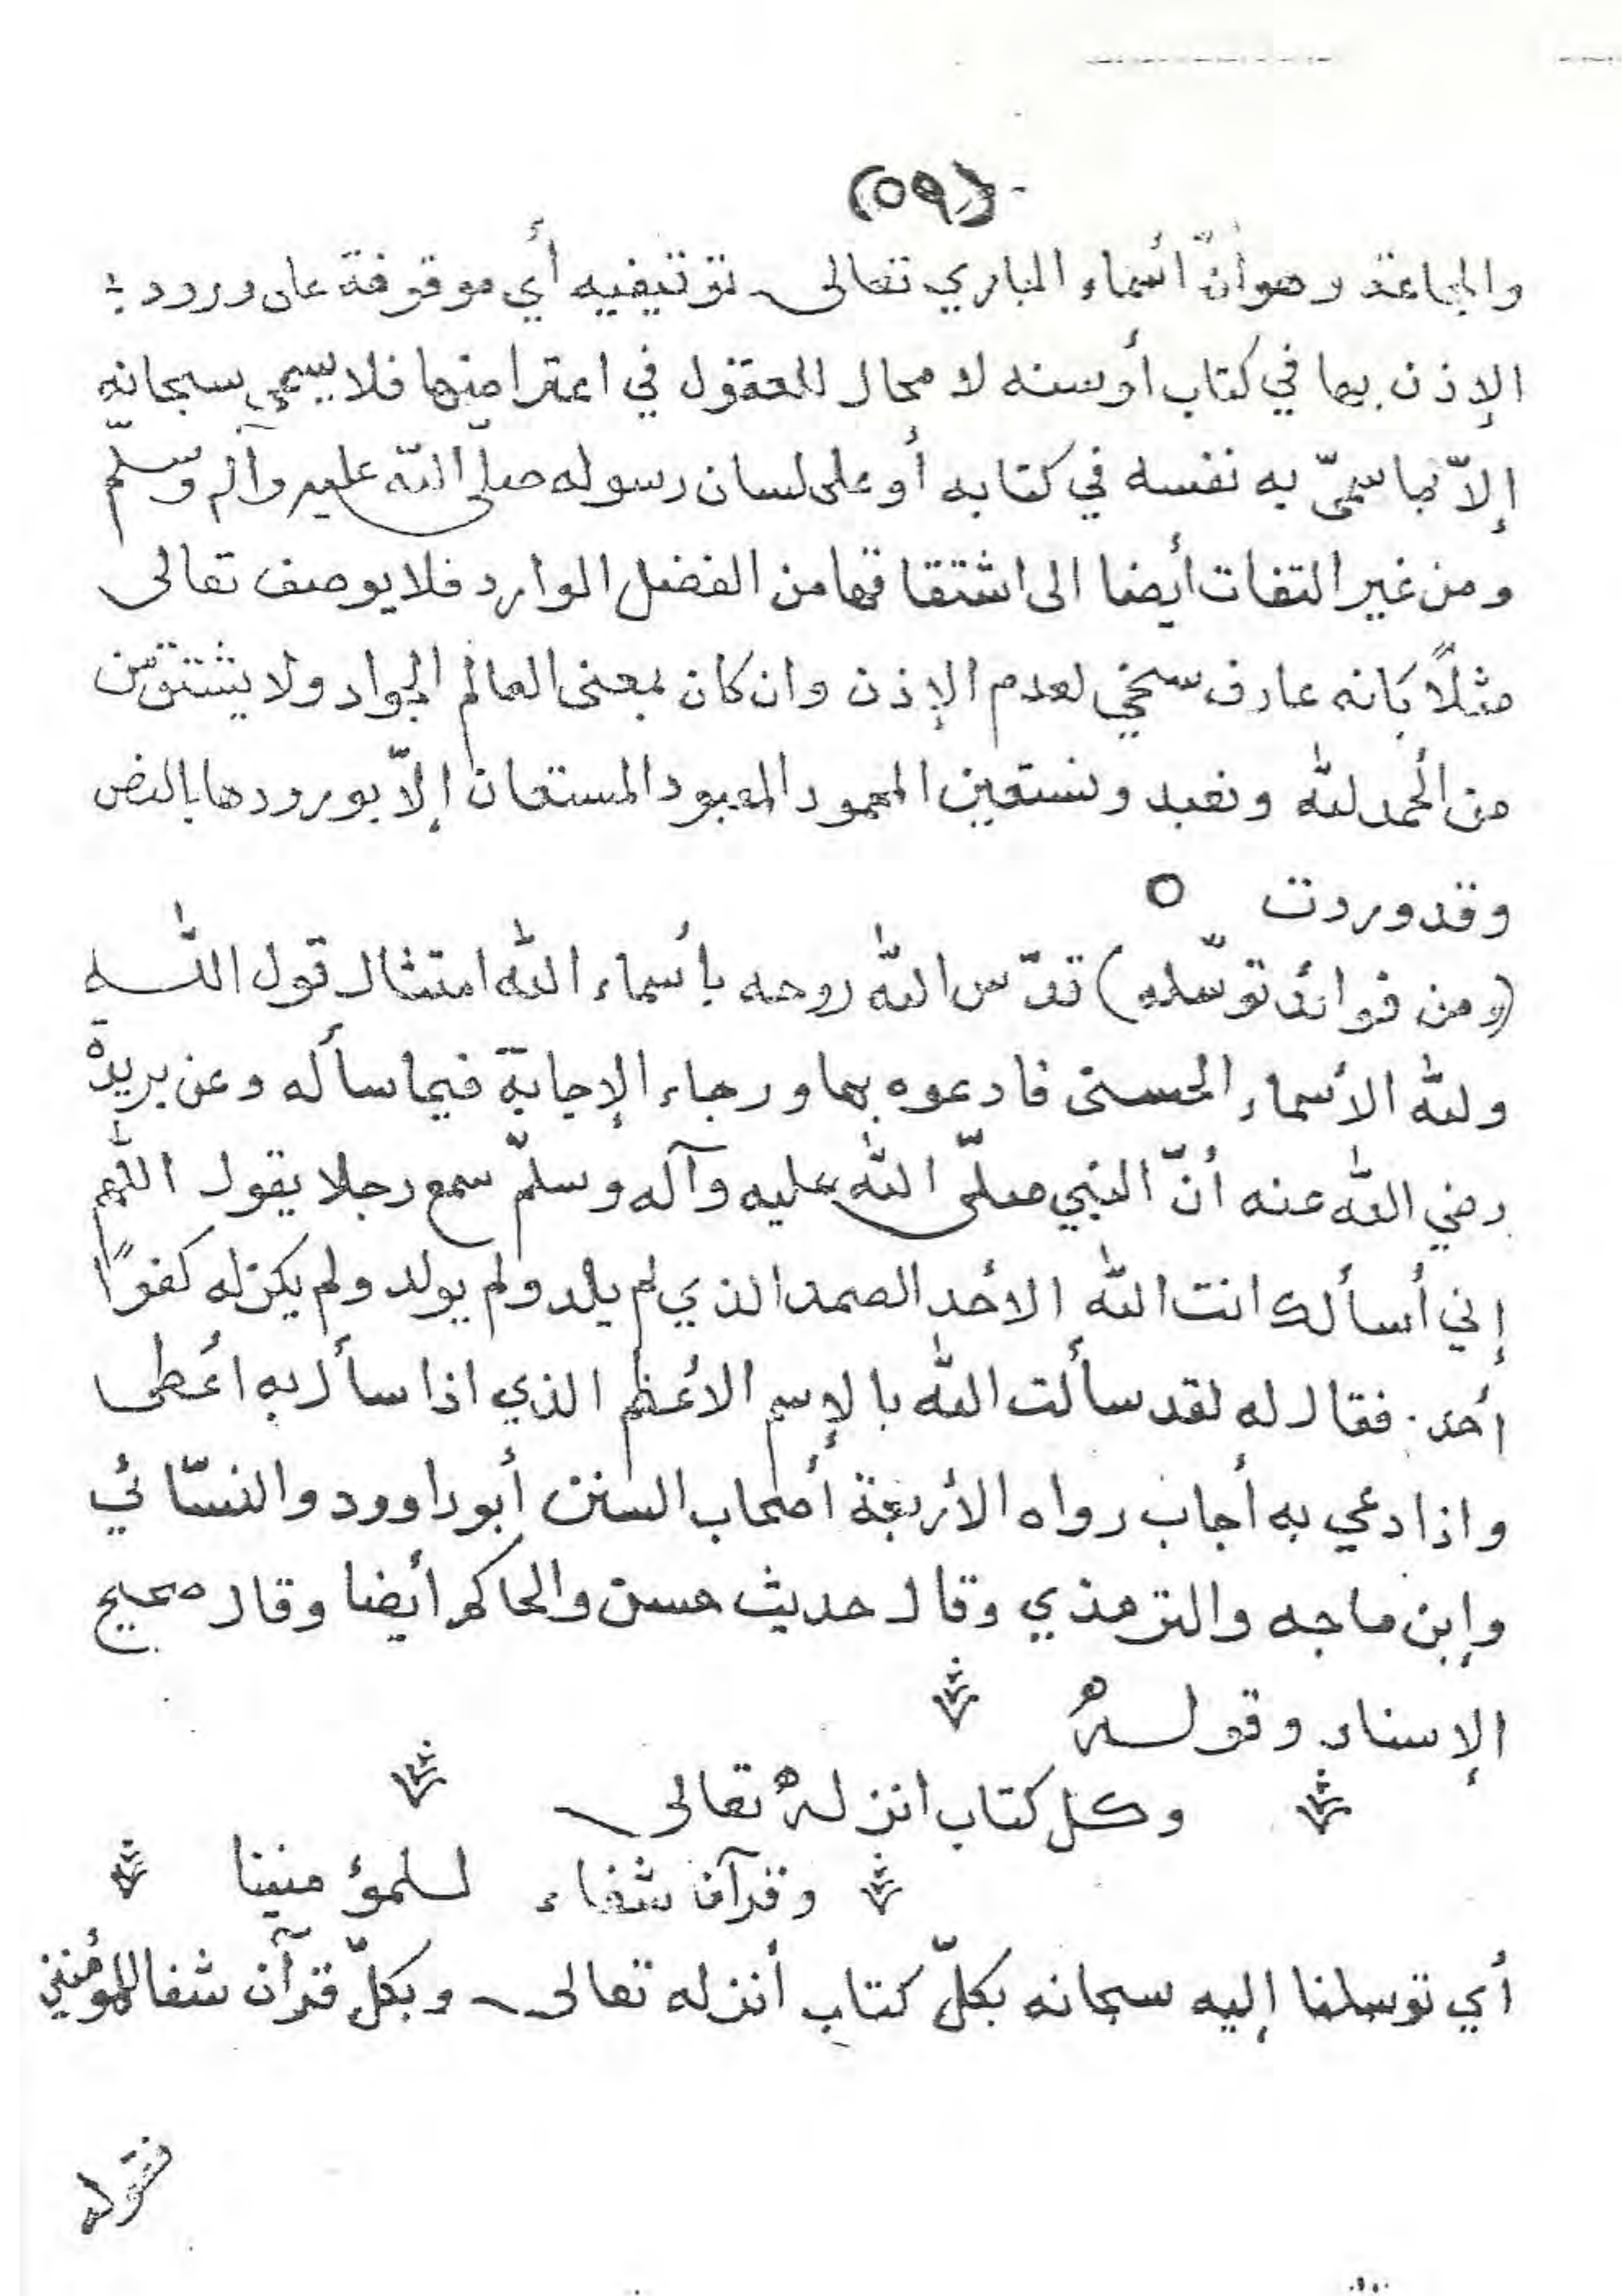 (٥٩)
والجاعة وهو أنّ أسماء الباري تعالى توقيفيه أي موقوفة على ورود
الإذن بها في كتاب أو سنه لا مجال للعقول في اعتراضها فلا يسمى سبحانه
إلاّ بما سمّى به نفسه في كتابه أو على لسان رسوله صلّى اللّه عليه وآله وسلّم
ومن غير التفات أيضا الى اشتقاقها من الفضل الوارد فلا يوصف تعالى
مثلاً بانه عارف سخي لعدم الإذن وان كان بمعنى العالم الجواد ولا يشتق من
من الحمد للّه ونعبد ونستعين المحمود المعبود المستعان إلاّ بورودها بالنص
وقد وردت ○
(ومن فوائد توسّله) قدّس اللّه روحه بأسماء اللّه امتثال قول اللّه
وللّه الأسماء الحسنى فادعوه بها ورجاء الإجابة فيما سأله وعن بريدة
رضي اللّه عنه أنّ النبي صلّى اللّه عليه وآله وسلّم سمع رجلا يقول اللّهم
إني أسألك انت اللّه الأحد الصمد الذي لم يلد ولم يولد ولم يكن له كفوًا
أحد . فقال له لقد سألت اللّه بالإسم الأعظم الذي اذا سأل به اعطى
واذا دعي به أجاب رواه الأربعة أصحاب السنن أبوداوود والنسّائي
وإبن ماجه والترمذي وقال حديث حسن والحاكم أيضا وقال صحيح
الإسناد وقوله
وكل كتاب انزله تعالى
وقرآن شفاء للمؤمنينا
أي توسلنا إليه سبحانه بكلّ كتاب أنزله تعالى وبكلّ قرآن شفا للمؤمنين
فقوله